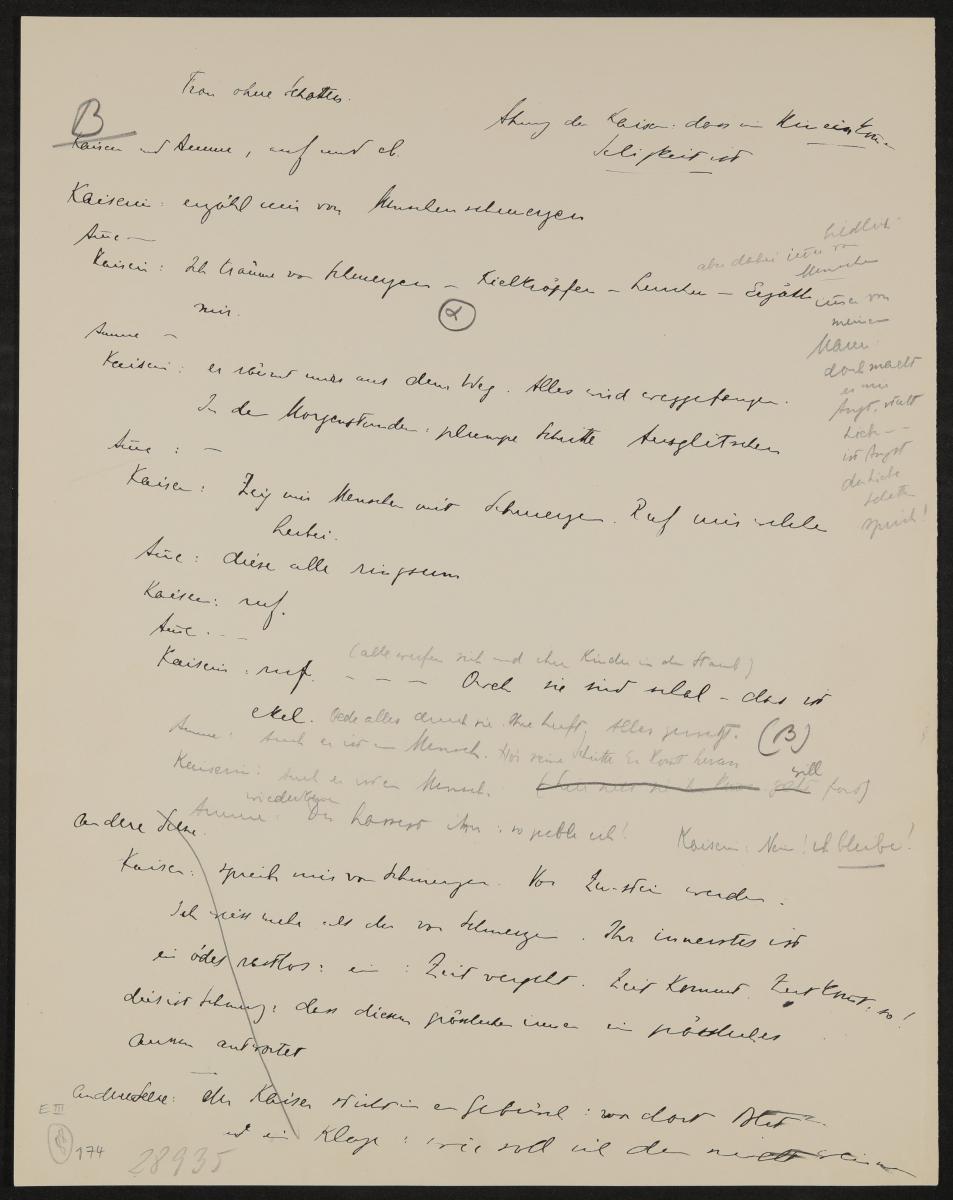 Frau ohne Schatten.
B
Ahnung der Kaiserin: dass im Hinein
Seligkeit ist
Kaiserin und Amme, auf und ab.
Kaiserin: erzähl mir von Menschenschmerzen
Ame —
Kaiserin: Ich träume von Schmerzen – Kielkröpfen – – Erzähl
mir.
α
aber dabei immer von
Menschen
immer von
meinem
Mann
doch macht
er mir
Angst, statt
Liebe – –
ist Angst
der Liebe
Schatten
sprich!
Amme –
Kaiserin: er räumt uns aus dem Weg. Alles wird weggefangen.
In den Morgenstunden: plumpe Schritte Ausglitschen
Ame: –
Kaiserin: Zeig mir Menschen mit Schmerzen. Ruf mir welche
herbei.
Ame: diese alle ringsum
Kaiserin: ruf.
Ame. – –
(alle werfen sich und ihre Kinder in den Staub)
Kaiserin: ruf. – – – Auch sie sind schal – das ist
ekel. Oede alles durch sie. Ihre Luft, Alles
(B)
Amme: Auch er ist ein Mensch. Hör seine Schritte Er komt heran
Kaiserin: Auch er ist ein Mensch.
will fort)
wiederholen
Amme: Du hassest ihn: so gehe ich! Kaiserin: Nein! ich bleibe!
andere Scene.
Kaiserin: sprich mir von Schmerzen. Von Zu-stein werden.
Ich weiss mehr als du von Schmerzen. Ihr innerstes ist
ein ödes rastlos: ein: Zeit vergeht. Zeit kommt. Zeit komt, so!
dies ist Schmerz: dass diesem grässlichen innen ein grässliches
aussen antwortet
andere Scene: der Kaiser in ein Gebüsch: von dort
und ein Klage: wie soll ich den
E III
174
28935